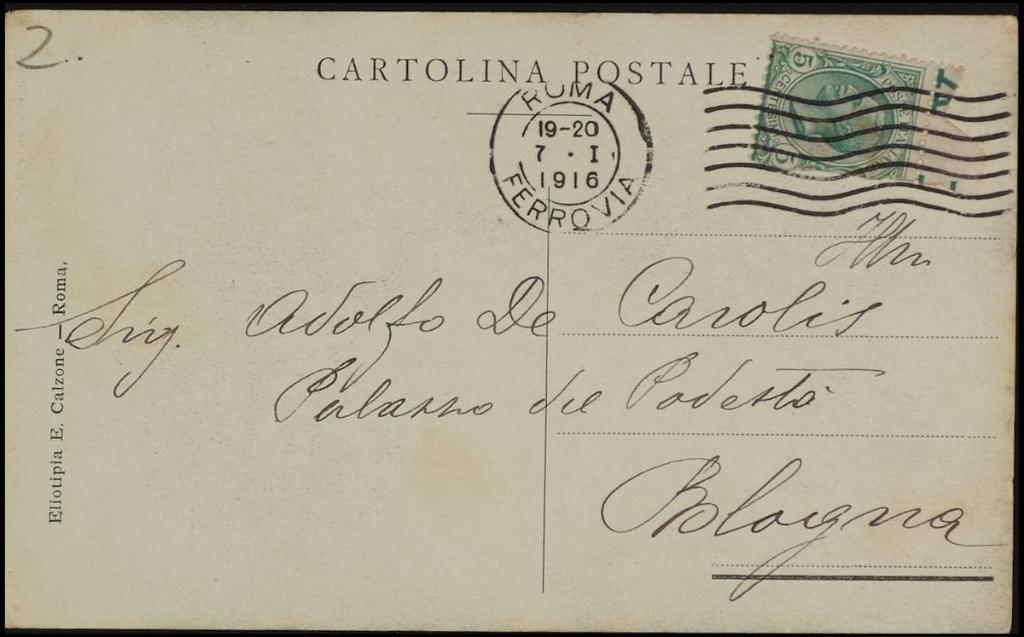 2.
CARTOLINA POSTALE
ROMA
19-20
7 · I
1916
FERROVIA
5
Ill.mo
Sig. Adolfo De Carolis
Palazzo del Podestà
Bologna
Eliotipia E. Calzone – Roma.